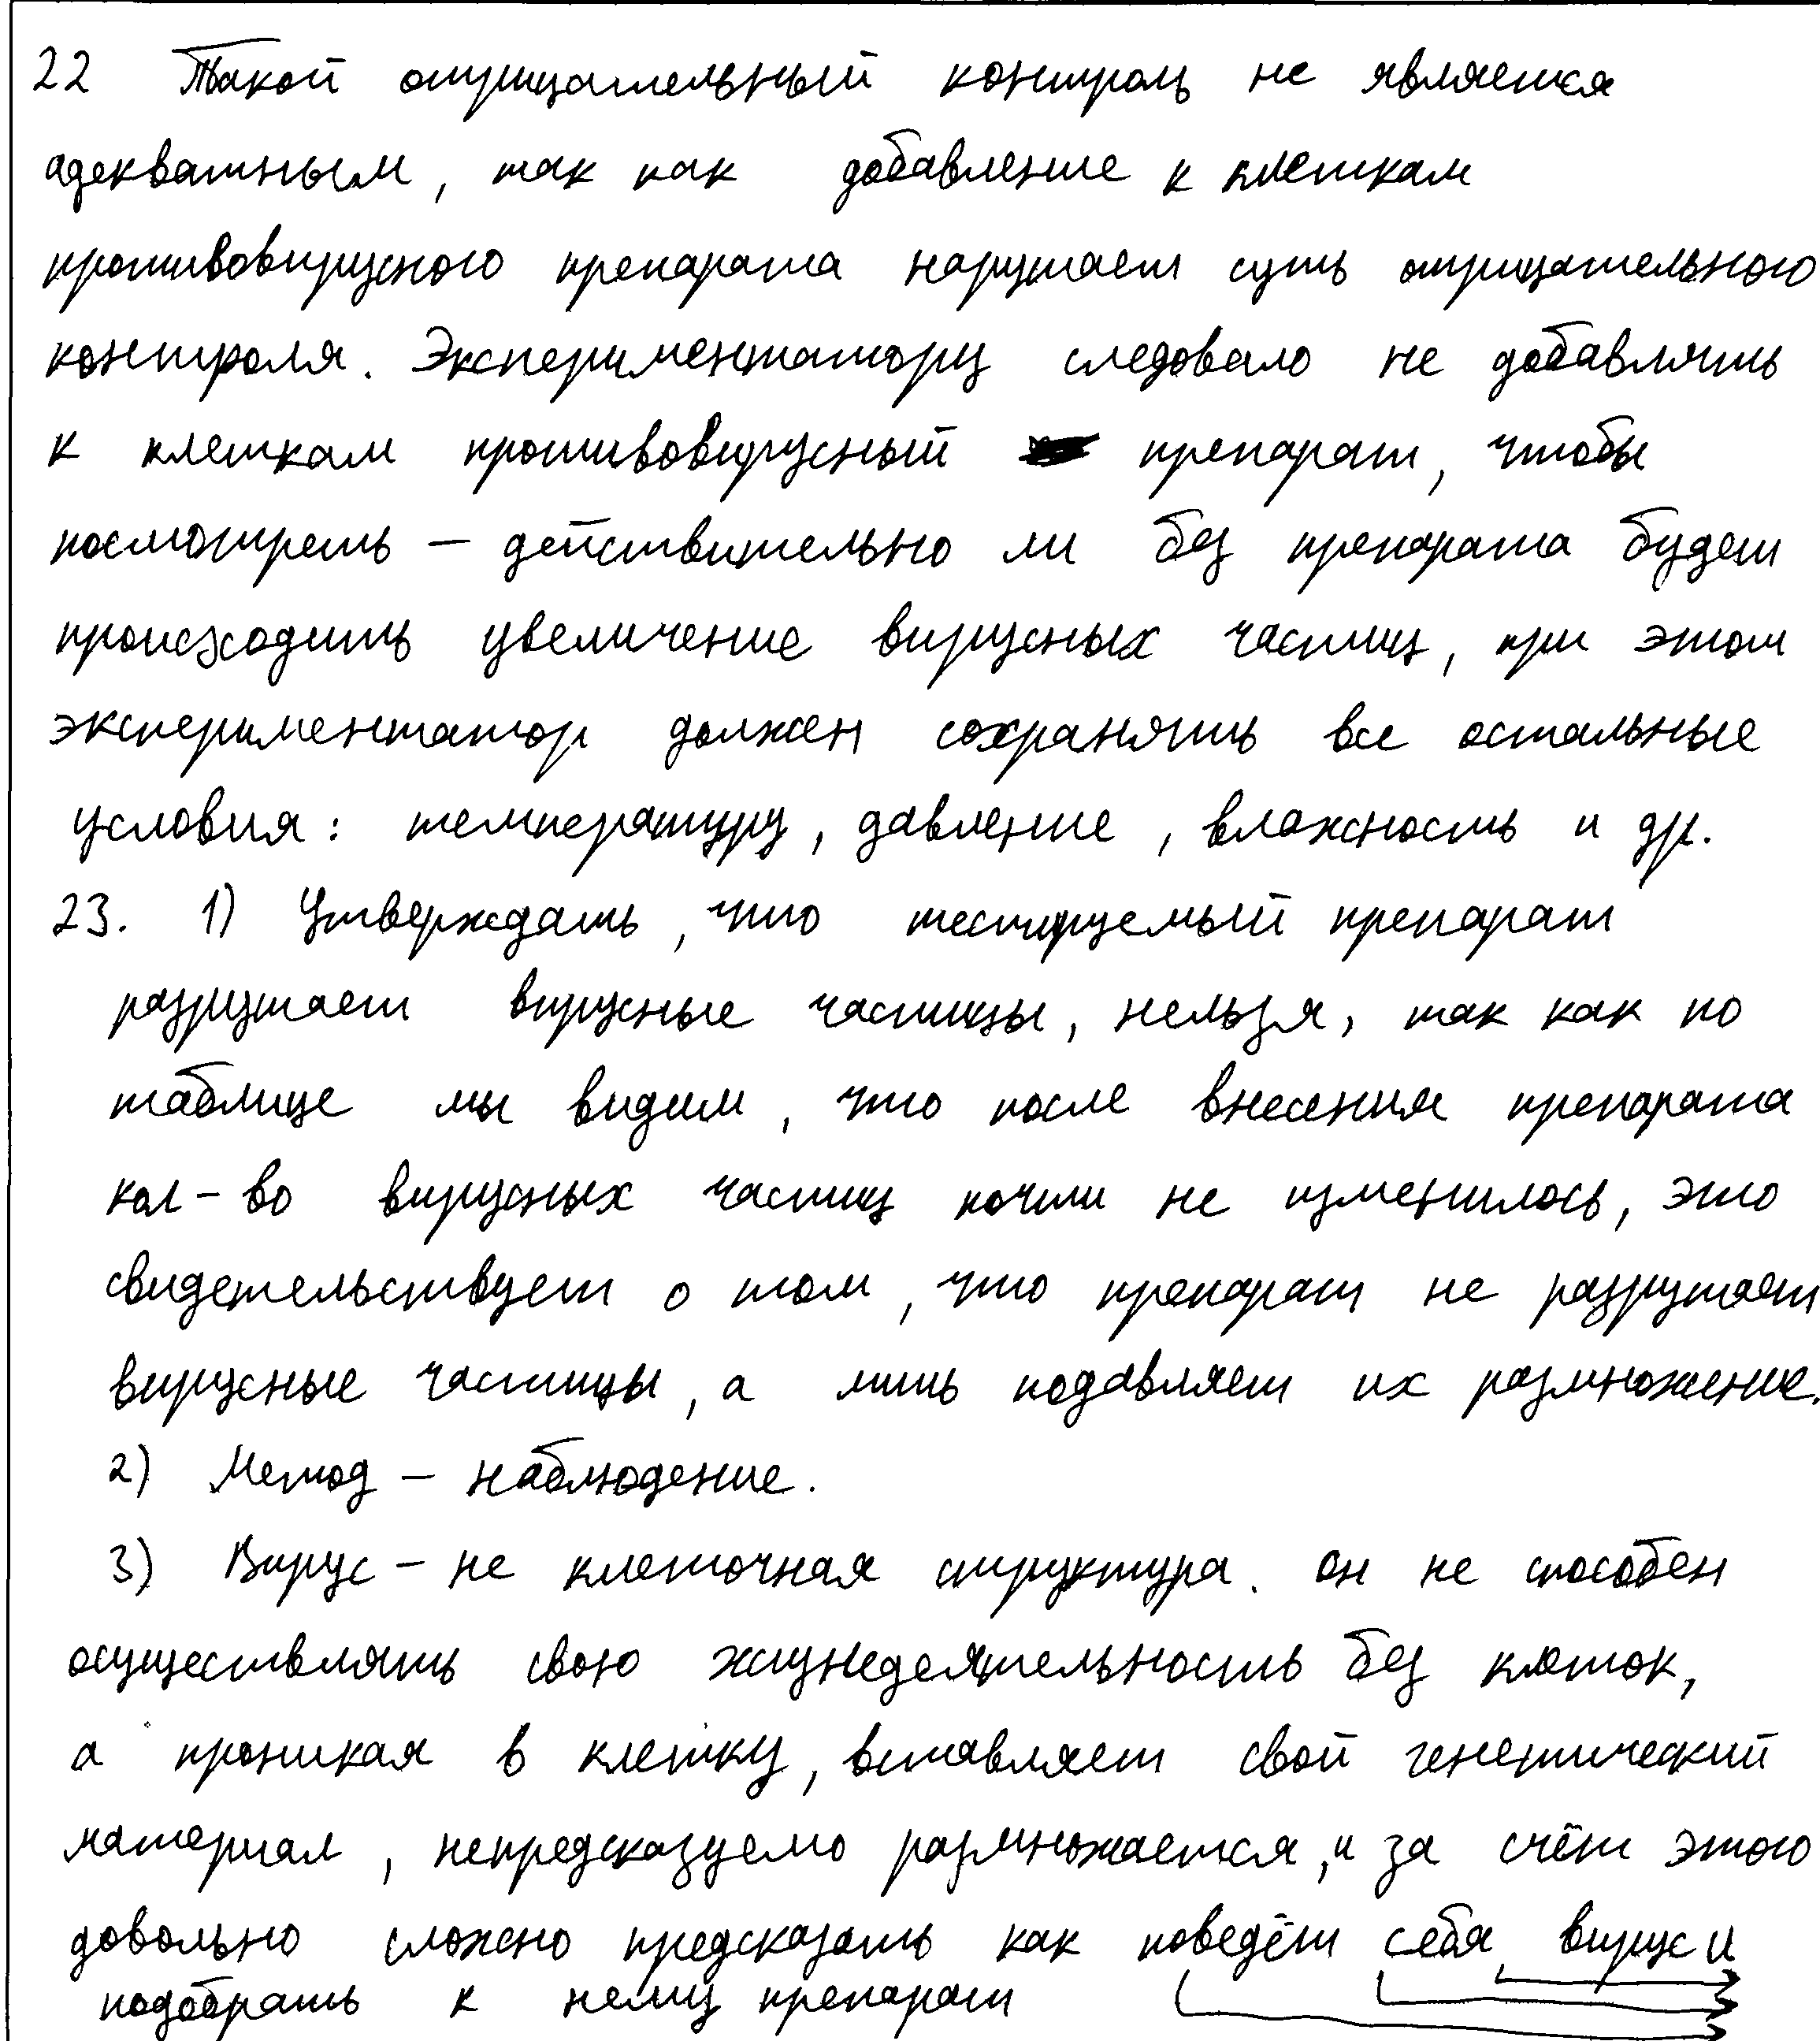 22 Такой отрицательный контроль не является
адекватным, так как добавление к клеткам
противовирусного препарата нарушает суть отрицательного
контроля. Экспериментатору следовало не добавлять
к клеткам противовирусный препарат, чтобы
посмотреть – действительно ли без препарата будет
происходить увеличение вирусных частиц, при этом
экспериментатор должен сохранять все остальные
условия: температуру, давление, влажность и др.
23. 1) Утверждать, что тестируемый препарат
разрушает вирусные частицы, нельзя, так как по
таблице мы видим, что после внесения препарата
кол-во вирусных частиц почти не изменилось, это
свидетельствует о том, что препарат не разрушает
вирусные частицы, а лишь подавляет их размножение.
2) Метод – наблюдение.
3) Вирус – не клеточная структура. он не способен
осуществлять свою жизнедеятельность без клеток,
а проникая в клетку, вставляет свой генетический
материал, непредсказуемо размножается, и за счёт этого
довольно сложно предсказать как поведёт себя вирус и
подобрать к нему препарат